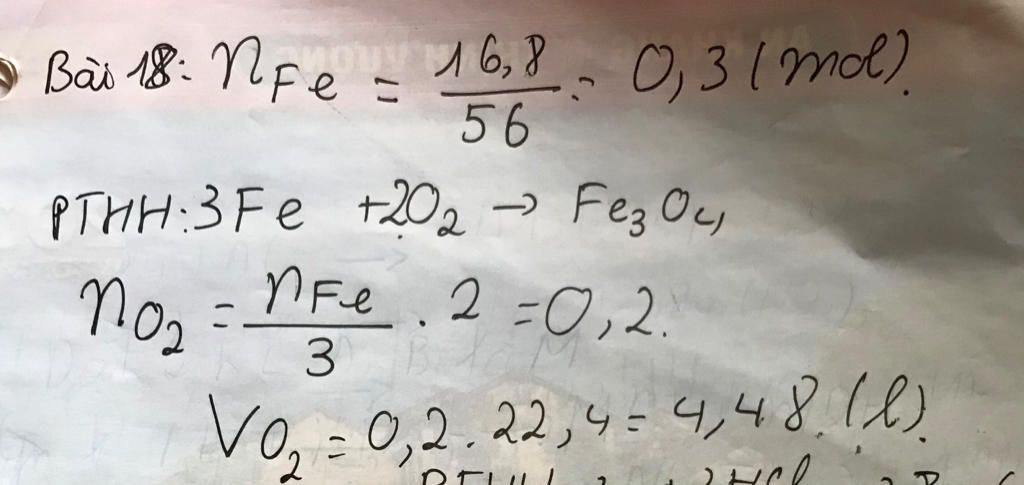 Bài 18: nFe = 16,8/56 = 0,3 (mol).
PTHH: 3Fe + 2O2 → Fe3O4
nO2 = nFe/3 . 2 = 0,2.
VO2 = 0,2 . 22,4 = 4,48 (l).